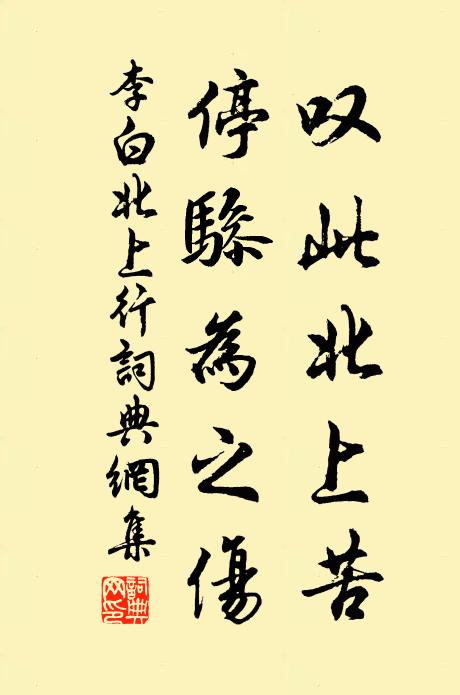 叹此北上苦
停驂為之傷
李白北上行詞典網集
詞典网印